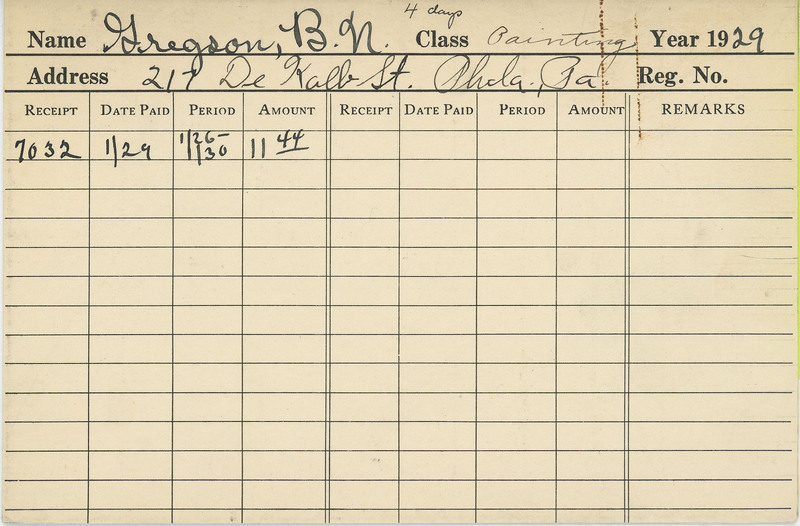 4 days
Name Gregson, B. N. Class Painting Year 1929
Address 217 De Kalb St. Phila, Pa. Reg. No.
RECEIPT DATE PAID PERIOD AMOUNT RECEIPT DATE PAID PERIOD AMOUNT REMARKS
7032 1/29 1/26-1/30 11 44